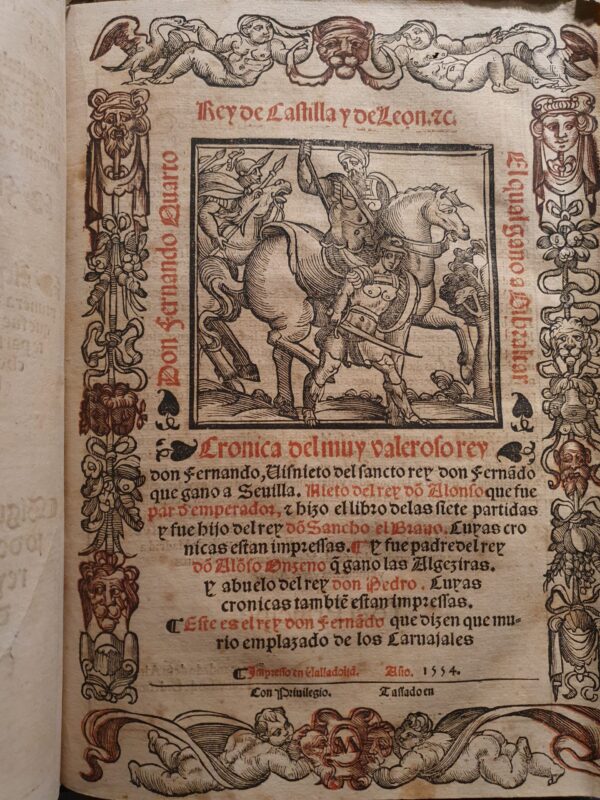 Rey de Castilla y de Leon. ⁊c.
Don Fernando Quarto
El qual gano a Gibraltar
Cronica del muy valeroso rey
don Fernando, Uisnieto del sancto rey don Fernãdo
que gano a Seuilla. Nieto del rey dõ Alonso que fue
par d'emperador, ⁊ hizo el libro delas siete partidas
y fue hijo del rey dõ Sancho el Brauo. Cuyas cro
nicas estan impressas. ¶ Y fue padre del rey
dõ Alõso Onzeno q̃ gano las Algeziras.
Y abuelo del rey don Pedro. Cuyas
cronicas tambiẽ estan impressas.
¶ Este es el rey don Fernãdo que dizen que mu-
rio emplazado de los Caruajales
¶ Impresso en Ualladolid. Año. 1554.
Con Priuilegio. Tassado en